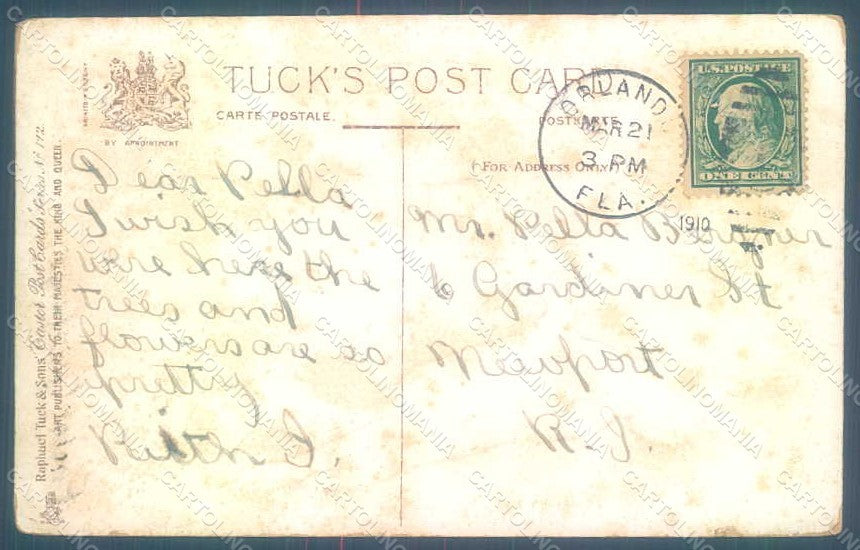 TUCK'S POST CARD
CARTE POSTALE.
POSTKARTE
BY APPOINTMENT
(FOR ADDRESS ONLY)
ORLANDO
MAR 21
3 PM
FLA.
1910
U.S. POSTAGE
ONE CENT
Dear Pella
I wish you
were here the
trees and
flowers are so
pretty
Ruth I.
Pella
6 Gardiner St
Newport
R.I.
Raphael Tuck & Sons' Easter Post Cards Series No 112.
ART PUBLISHERS TO THEIR MAJESTIES THE KING AND QUEEN.
CARTOLINOMANIA